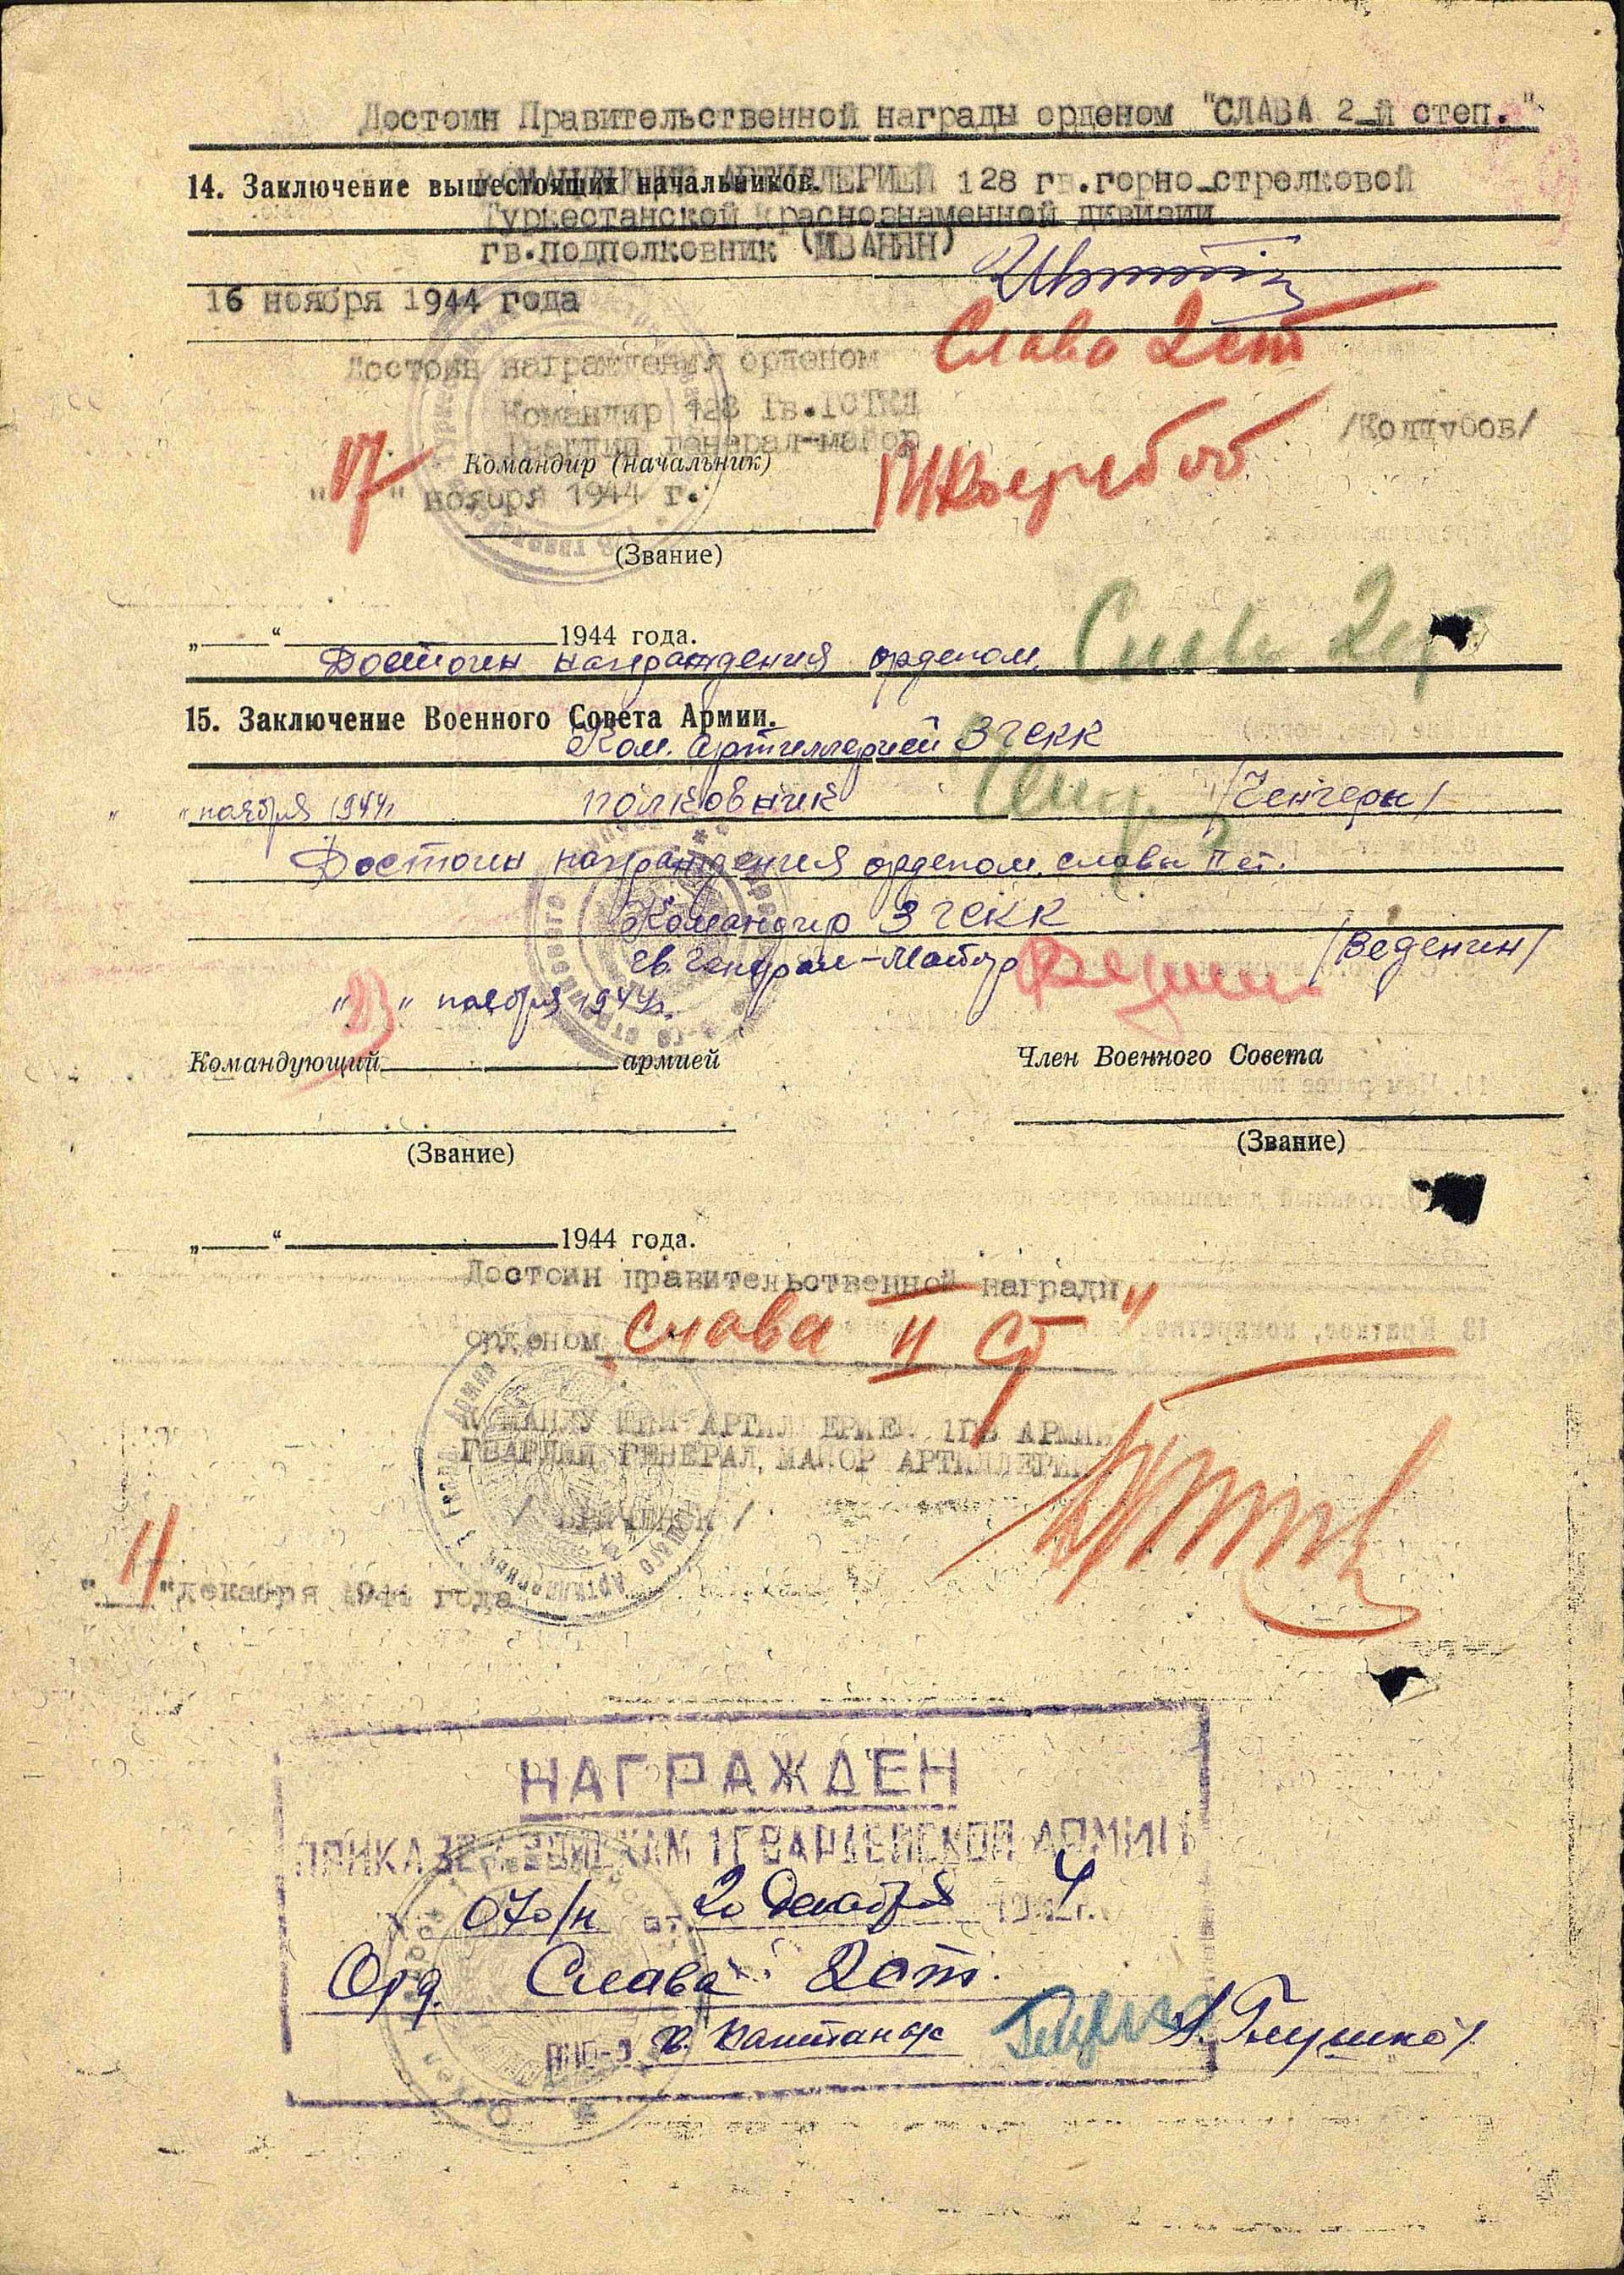 Достоин Правительственной награды орденом "СЛАВА 2-й степ."
14. Заключение вышестоящих начальников.
КОМАНДУЮЩИЙ АРТИЛЛЕРИЕЙ 128 гв.горно-стрелковой
Туркестанской краснознаменной дивизии
гв.подполковник (ИВАНЯН)
16 ноября 1944 года
Слава 2 ст
Достоин награждения орденом
Командир 128 Гв.ГСТКД
Гвардии генерал-майор
/Колдубов/
Командир (начальник)
"17" ноября 1944 г.
(Звание)
„ “ 1944 года.
Достоин награждения орденом Слава 2 ст
15. Заключение Военного Совета Армии.
Ком. артиллерией 3 гскк
полковник /Ченгеры/
" " ноября 1944г
Достоин награждения орденом славы II ст.
Командир 3 гскк
гв. генерал-майор /Веденин/
"23" ноября 1944г.
Командующий армией
Член Военного Совета
(Звание)
(Звание)
„ “ 1944 года.
Достоин правительственной награды
орденом "Слава II ст"
КОМАНДУЮЩИЙ АРТИЛЛЕРИЕЙ 1ГВ АРМИИ
ГВАРДИИ ГЕНЕРАЛ МАЙОР АРТИЛЛЕРИИ
"11" декабря 1944 года
НАГРАЖДЕН
ПРИКАЗЕ ВОЙСКАМ 1 ГВАРДЕЙСКОЙ АРМИИ
070/н от 20 декабря 1944г.
Орд. Слава 2 ст.
А. Глушко